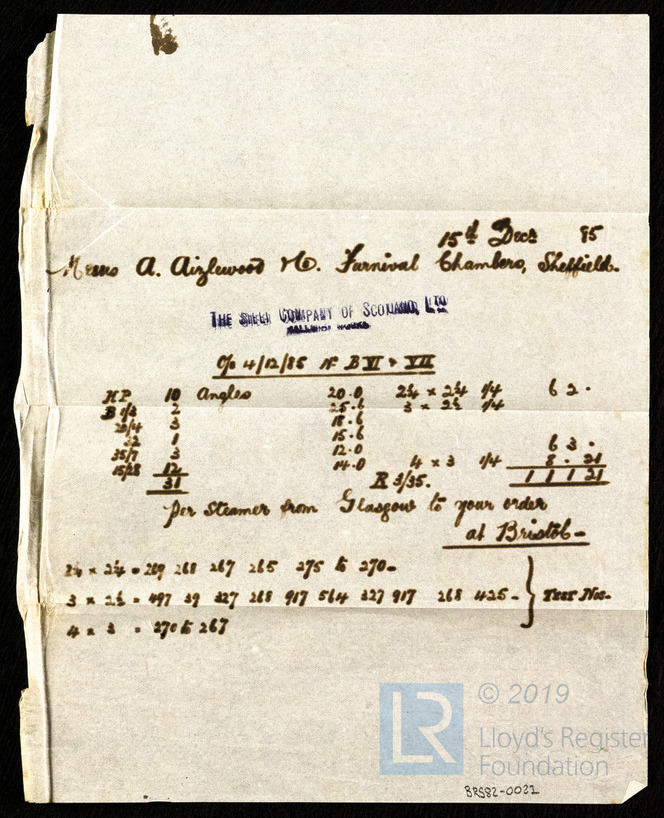 15th Decr 85
Messrs A. Aizlewood & Co. Furnival Chambers, Sheffield.
THE STEEL COMPANY OF SCOTLAND, LTD
HALLSIDE WORKS
O/o 4/12/85 No B VI & VII
HP 10 Angles 20.0 2¼ x 2¼ 1/4 6 2 .
B 1/3 2 25.6 3 x 2½ 1/4
29/4 3 18.6
32 1 15.6
35/7 3 12.0 6 3 .
15/28 12 14.0 4 x 3 1/4 8 . 21
31 R 3/35. 1 1 1 21
per Steamer from Glasgow to your order
at Bristol -
2¼ x 2¼ = 269 268 267 265 275 to 270 -
3 x 2½ = 497 39 327 268 917 564 327 917 268 425 - } Test Nos.
4 x 3 = 270 to 267
LR © 2019
Lloyd's Register
Foundation
BRS82-0021